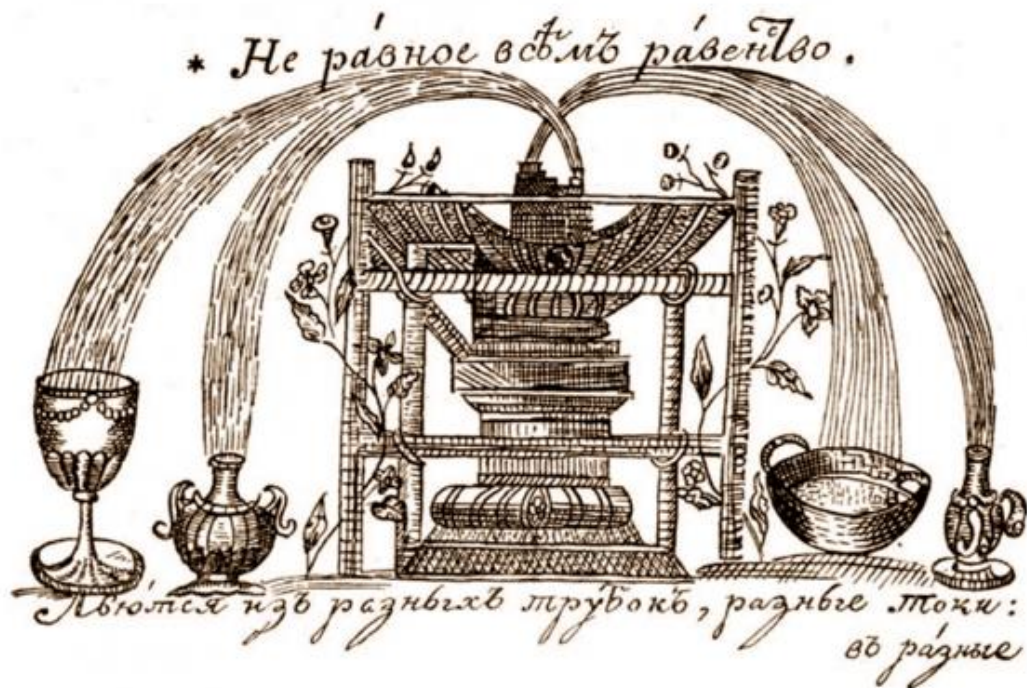 * Не ра́вное всѣ́мъ ра́венство.
Лью́тся изъ разныхъ тру́бокъ, разные токи:
въ ра́зные